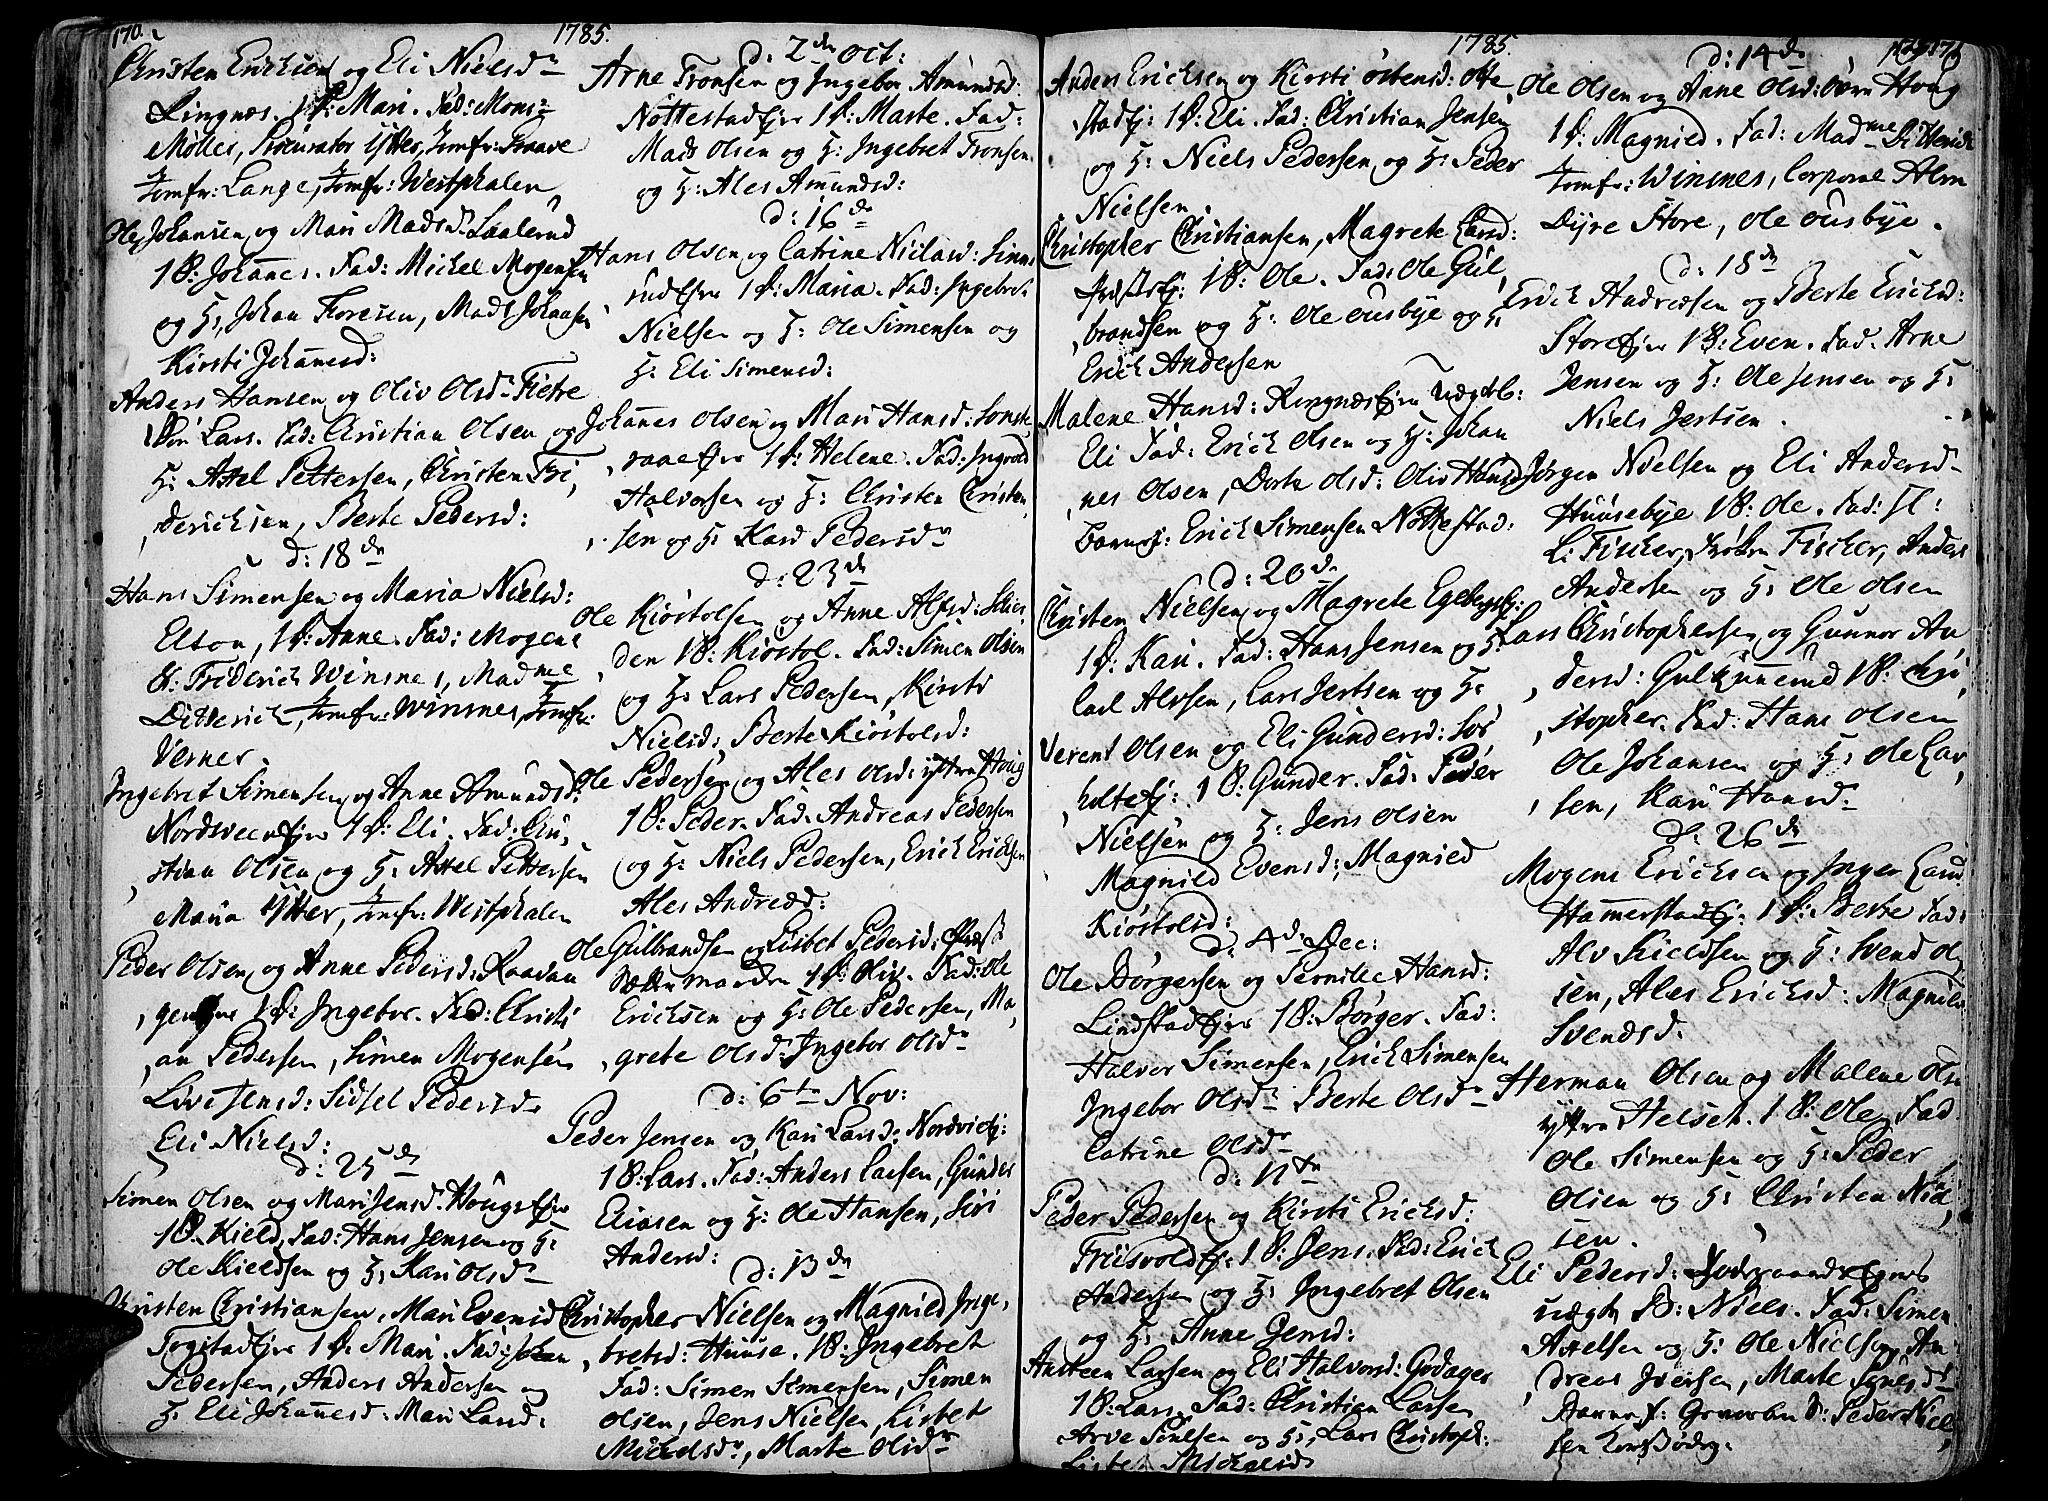 170.
1785.
Christen Erichsen og Eli Nielsdr
Lingnæs. 1 P: Mari. Fad: Mons:
Møller, Procurator Ytter, Jomfr: Graave
Jomfr: Lange, Jomfr: Westphalen
Ole Johansen og Mari Madsdr Laalerud
1 B: Johannes. Fad: Michel Mogensen
og H; Johan Floresen, Mads Johansen
Kirsti Johannesd:
Anders Hansen og Oliv Olsdr Tietre
Lars. Fad: Christian Olsen og
H; Axel Pettersen, Christen Fri,
derichsen, Berte Pedersd:
d: 18de
Hans Simensen og Maria Nielsd:
Elton, 1 P: Anne. Fad: Mogens
Friderich Winsnes, Madme
Ditterich, Jomfr: Winsnes, Jomfr:
Verner
Ingebret Simensen og Anne Amundsd:
Nordsveenejer 1 P: Eli. Fad: Chri,
stian Olsen og H; Axel Pettersen
Maria Ytter, Jomfr: Westphalen
Peder Olsen, og Anne Pedersd: Raadan
1 P: Ingebor. Fad: Christi
an Pedersen, Simen Mogensen
Live Jensd: Sidsel Pedersd:
Eli Nielsd:
d: 25de
Simen Olsen og Mari Jensd: Hougsejer
1 B. Kield, Fad: Hans Jensen og H:
Ole Kieldsen og H; Kari Olsdr
Christen Christiansen, Mari Evensd
Togstadejer 1 P: Mari. Fad: Johan
Pedersen, Anders Andersen og
H; Eli Johannesd: Mari Larsd:
d: 2den Oct:
Arne Tronsen og Ingebor Amundsd:
Nøttestadejer 1 P: Marte. Fad:
Mads Olsen og H: Ingebret Tronsen
og H: Ales Amundsd:
d: 16de
Hans Olsen og Catrine Nielsd: Sinne
rudejer 1 P: Maria. Fad: Ingebret
Nielsen og H: Ole Simensen og
H: Eli Simensd:
Johannes Olsen og Mari Hansd:
1 P: Helene. Fad: Ingvold
Halvorsen og H: Christen Christen,
sen og H: Kari Pedersdr
d: 23de
Ole Kiøstolsen og Anne Alfsd:
den 1 B: Kiøstol. Fad: Simen Olsen
og H: Lars Pedersen, Kirsti
Nielsd: Berte Kiøstolsd:
Ole Pedersen og Ales Olsd: yttre Houg
1 B: Peder. Fad: Andreas Pedersen
og H: Niels Pedersen, Erich Erichsen
Ales Andread:
Ole Gulbrandsen og Lisbet Pedersd: Præst
1 P: Oliv. Fad: Ole
Erichsen og H: Ole Pedersen, Ma,
grete Olsd: Ingebor Olsdr
d: 6te Nov:
Peder Jensen og Kari Larsd: Nordviej:
1 B: Lars. Fad: Anders Larsen, Gunder
Eliasen og H: Ole Hansen, Siri
Andersd:
d: 13de
Christopher Nielsen og Magnild Inge,
bretsd: Huuse. 1 B: Ingebret
Fad: Simen Simensen, Simen
Olsen, Jens Nielsen, Lisbet
Michelsdr, Marte Olsdr
1785.
Anders Erichsen og Kirsti Østensd: Otte
stadej: 1 P: Eli. Fad: Christian Jensen
og H: Niels Pedersen og H: Peder
Nielsen.
Christopher Christiansen, Magrete Larsd:
Præstej: 1 B: Ole. Fad: Ole Gul,
brandsen og H: Ole Ousbye og H;
Erich Andersen
Malene Hansd: Ringnæsejer Uægte:
Eli Fad: Erich Olsen og H: Johan
nes Olsen, Dorte Olsd: Oliv Hansd:
Barnef: Erich Simensen Nøttestad:
d: 20de
Christen Nielsen og Magrete Egebergsej:
1 P: Kari. Fad: Hans Jensen og H:
Carl Alvsen, Lars Jertsen og H:
Verent Olsen og Eli Gundersd: Sør
holtej: 1 B: Gunder. Fad: Peder
Nielsen og H: Jens Olsen
Magnild Evensd; Magnild
Kiøstolsd:
d: 4de Dec:
Ole Børgersen og Pernille Hansd:
Lindstadejer 1 B: Børger. Fad:
Halvor Simensen, Erich Simensen
Ingebor Olsdr Berte Olsdr
Catrine Olsdr
d: 11te
Peder Pedersen og Kirsti Erichsd:
Friisvoldej: 1 B: Jens. Fad: Erich
Andersen og H; Ingebret Olsen
og H; Anne Jensd:
Ansteen Larsen og Eli Halvorsd: Godager
1 B: Lars. Fad: Christian Larsen
Arve Poulsen og H; Lars Christoph:
Lisbet Michelsd
d: 14de
Ole Olsen og Anne Olsd: Øvre Houg
1 P: Magnild. Fad: Madme Ditterich
Jomfr: Winsnes, Corporal Alm
Dyre Store, Ole Ousbye.
d: 18de
Erich Andreæsen og Berte Erichsd:
Storeejer 1 B: Even. Fad: Arne
Jensen og H: Ole Jensen og H;
Niels Jertsen.
Jørgen Nielsen og Eli Andersd
Huusebye 1 B: Ole. Fad: Sl:
L: Fischer, Frøken Fischer, Anders
Andersen og H: Ole Olsen
Lars Christophersen og Gunnor An
dersd: Gulkunnerud 1 B: Chri,
stopher. Fad: Hans Olsen
Ole Johansen og H; Ole Lar,
sen, Kari Hansd.
d: 26de
Mogens Erichsen og Inger Larsd:
Hammerstadej: 1 P: Berte Fad:
Alv Kieldsen og H: Svend Ol,
sen, Ales Erichsd: Magnild
Svendsd:
Herman Olsen og Malene Olsd
yttre Helset. 1 B: Ole. Fad
Ole Simensen og H: Peder
Olsen og H; Christen Niel,
sen.
Eli Pedersd:
uægte B: Niels. Fad: Simen
Axelsen og H: Ole Nielsen, An
dreas Iversen, Marte
Barnef: B: Peder Niel,
sen